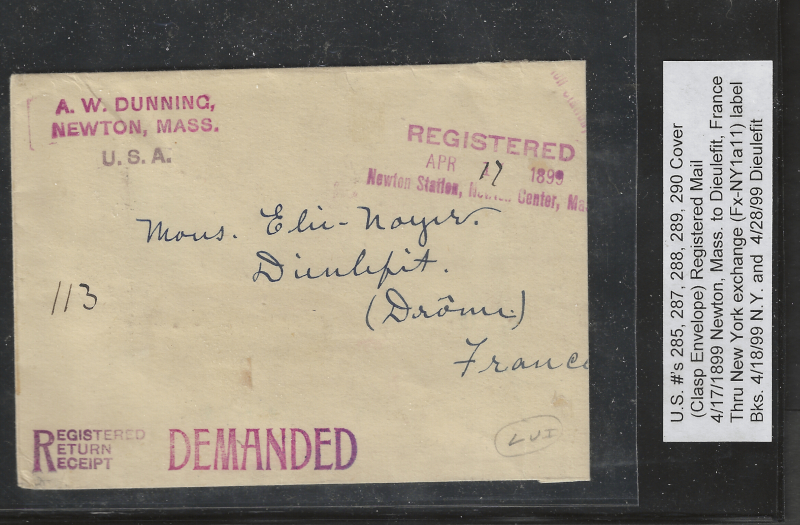 A. W. DUNNING,
NEWTON, MASS.
U. S. A.
REGISTERED
APR 17 1899
Newton Station, Newton Center, Ma
Mons. Elie-Noyer.
Dieulefit.
(Drôme.)
France
113
REGISTERED
RETURN
RECEIPT
DEMANDED
LUI
U.S. #'s 285, 287, 288, 289, 290 Cover
(Clasp Envelope) Registered Mail
4/17/1899 Newton, Mass. to Dieulefit, France
Thru New York exchange (Fx-NY1a11) label
Bks. 4/18/99 N.Y. and 4/28/99 Dieulefit